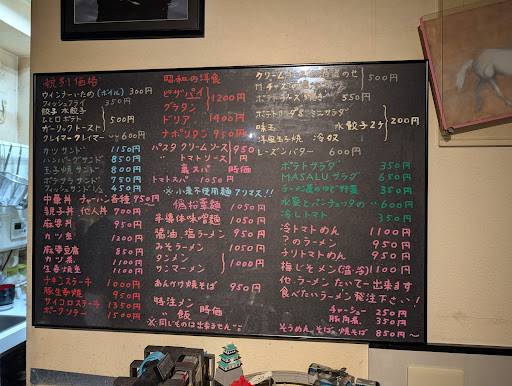 税別価格
ウインナーいため(ボイル) 300円
フィッシュフライ 350円
餃子 水餃子
ムヒロポテト 500円
ガーリックトースト
クレイマークレイマー 600円
カツサンド 1150円
ハンバーグサンド 850円
玉子焼サンド 800円
フィッシュサンド
中華丼 チャーハン各種 950円〜
親子丼 他人丼 700円
麻婆丼 950円
カツ重 1200円
麻婆豆腐 850円
カツ煮 1100円
生姜焼 1100円
チキンステーキ 1000円
豚生姜焼 950円
サイコロステーキ 1350円
ポークソテー 1500円
昭和の洋食
ピザパイ 1200円
グラタン
ドリア 1400円
ナポリタン 950円
パスタ クリームソース 950円
〃 トマトソース
裏スパ 時価
トマトスパ 1050円
※小麦不使用麺アリマス!!
担担葉麺 1050円
半導体味噌麺 1050円
醤油、塩ラーメン 950円
みそラーメン 1050円
タンメン 1000円
サンマーメン
あんかけ焼そば 950円
特注メン 時価
〃 飯
※同じものは出来ません
クリーム 500円
Mチーズの
550円
ポテトサラダ&ミニサラダ
味玉 水餃子2ケ 200円
冷奴
レーズンバター 600円
ポテトサラダ 350円
MASALUサラダ 650円
ラーメン屋のゆで野菜 350円
水菜とパンチェッタの〃 600円
冷しトマト 350円
冷トマトめん 1100円
?のラーメン 950円
チリトマトめん 950円
梅じそメン(温・冷) 1100円
他・ラーメンたいてー出来ます
食べたいラーメン発注下さい!
チャーシュー 250円
豚角煮 350円
そうめん、そば、焼そば 850円〜